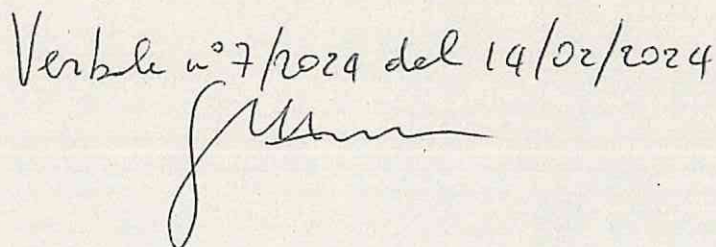 Verbale n°7/2024 del 14/02/2024